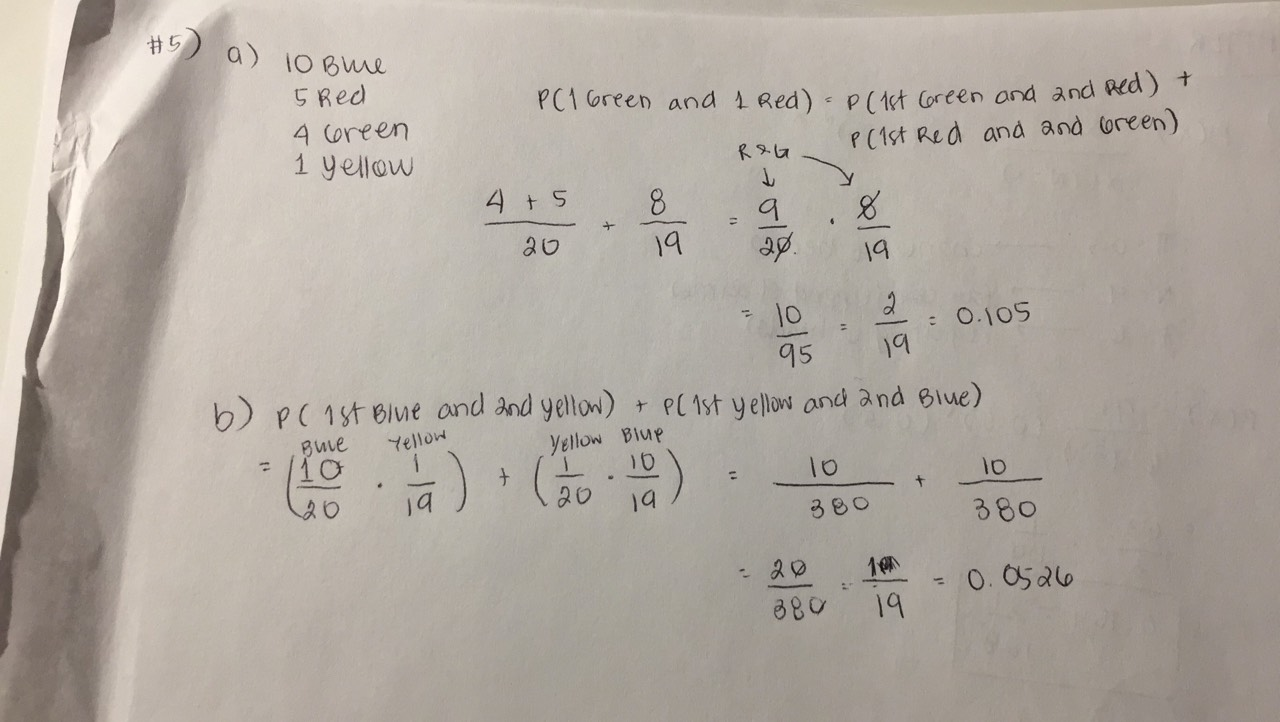 #5) a) 10 Blue
5 Red
4 Green
1 Yellow
P(1 Green and 1 Red) = P(1st Green and 2nd Red) +
P(1st Red and 2nd Green)
R & G
4 + 5 / 20 + 8 / 19 = 9 / 20 · 8 / 19
= 10 / 95 = 2 / 19 = 0.105
b) P( 1st Blue and 2nd yellow) + P(1st yellow and 2nd Blue)
Blue Yellow Yellow Blue
= (10 / 20 · 1 / 19) + (1 / 20 · 10 / 19) = 10 / 380 + 10 / 380
= 20 / 380 = 1 / 19 = 0.0526